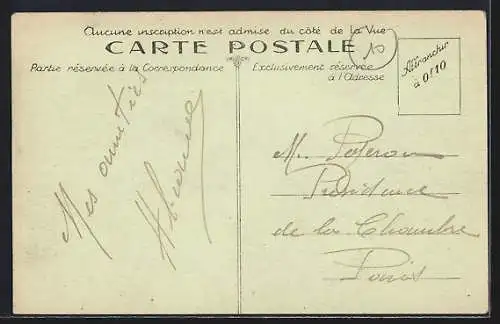 Aucune inscription n'est admise du côté de la Vue
CARTE POSTALE
Partie réservée à la Correspondance
Exclusivement réservée
à l'Adresse
Affranchir
à 0f10
10
Mes amitiés
Mr
Présidence
de la Chambre
Paris